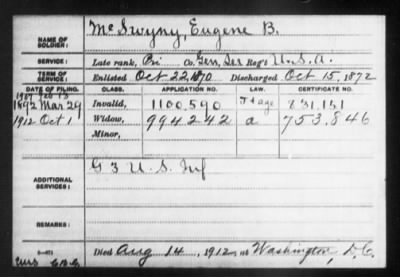 NAME OF SOLDIER: McSwyny, Eugene B.
SERVICE: Late rank, Pvt Co. Gen. Ser Reg't U.S.A.
TERM OF SERVICE: Enlisted Oct 22, 1870 Discharged Oct 15, 1872
DATE OF FILING. CLASS. APPLICATION NO. LAW. CERTIFICATE NO.
1907 Feb 13
1892 Mar 29 Invalid, 1100.590 + age 831,151
1912 Oct 1 Widow, 994242 a 753.846
Minor,
ADDITIONAL SERVICES: G 3 U.S. Inf
REMARKS:
Died Aug 14, 1912, at Washington, D.C.